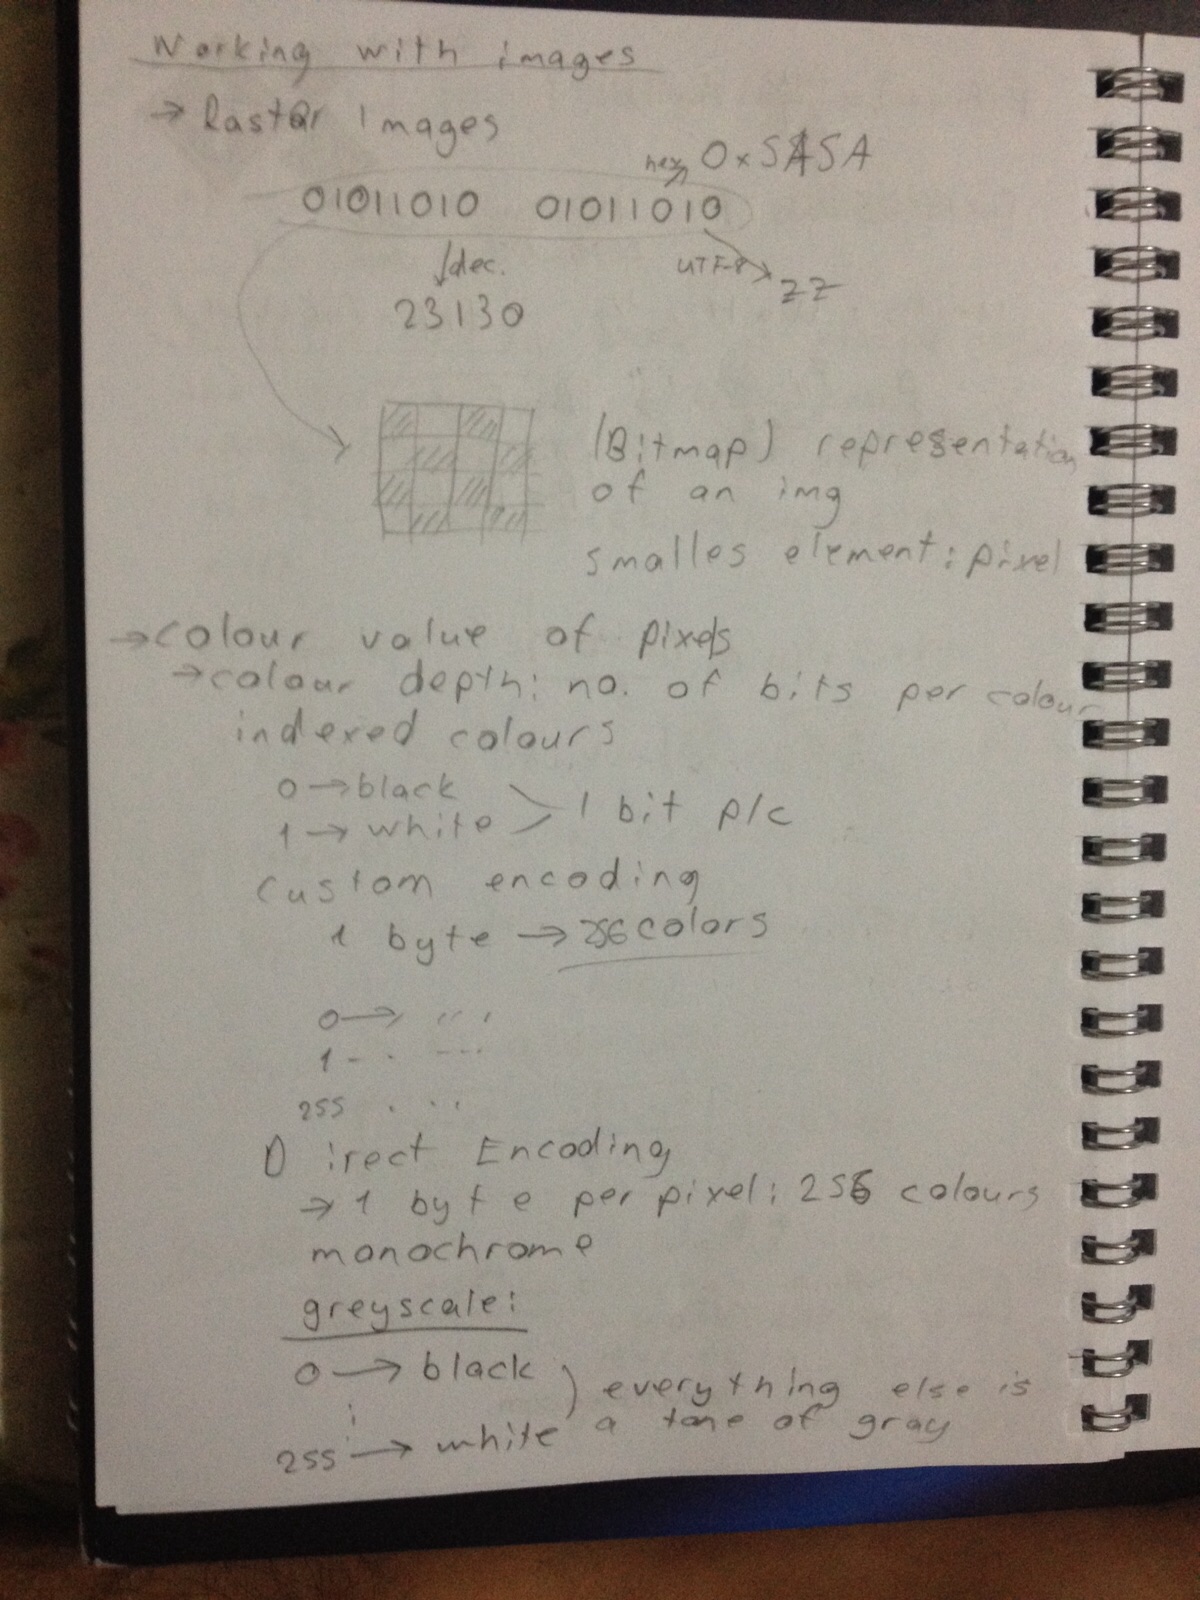 Working with images
→ Raster Images
hex 0x5A5A
01011010 01011010
dec. UTF-8 ZZ
23130
(Bitmap) representation
of an img
smalles element: pixel
→ colour value of pixels
→ colour depth: no. of bits per colour
indexed colours
0 → black
1 → white > 1 bit p/c
Custom encoding
1 byte → 256 colors
0 → ...
1 - . ...
255 . . .
Direct Encoding
→ 1 byte per pixel: 256 colours
monochrome
greyscale:
0 → black
⋮ ) everything else is
255 → white a tone of gray